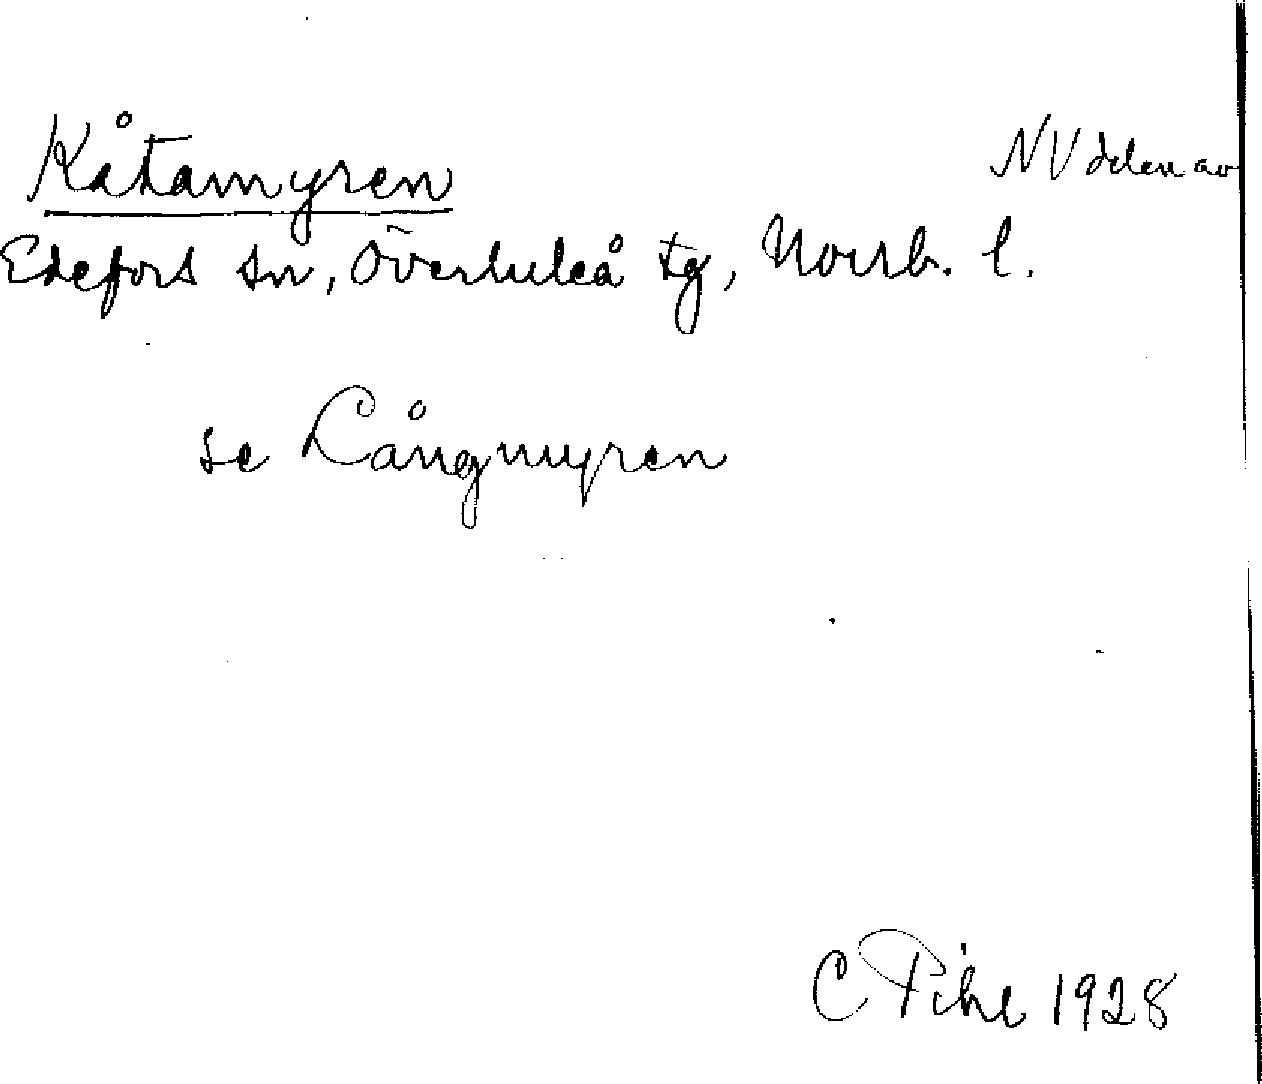 Kåtamyren
NV delen av
Edefors sn, Överluleå tg, Norrb. l.
se Långmyren
C Pihl 1928